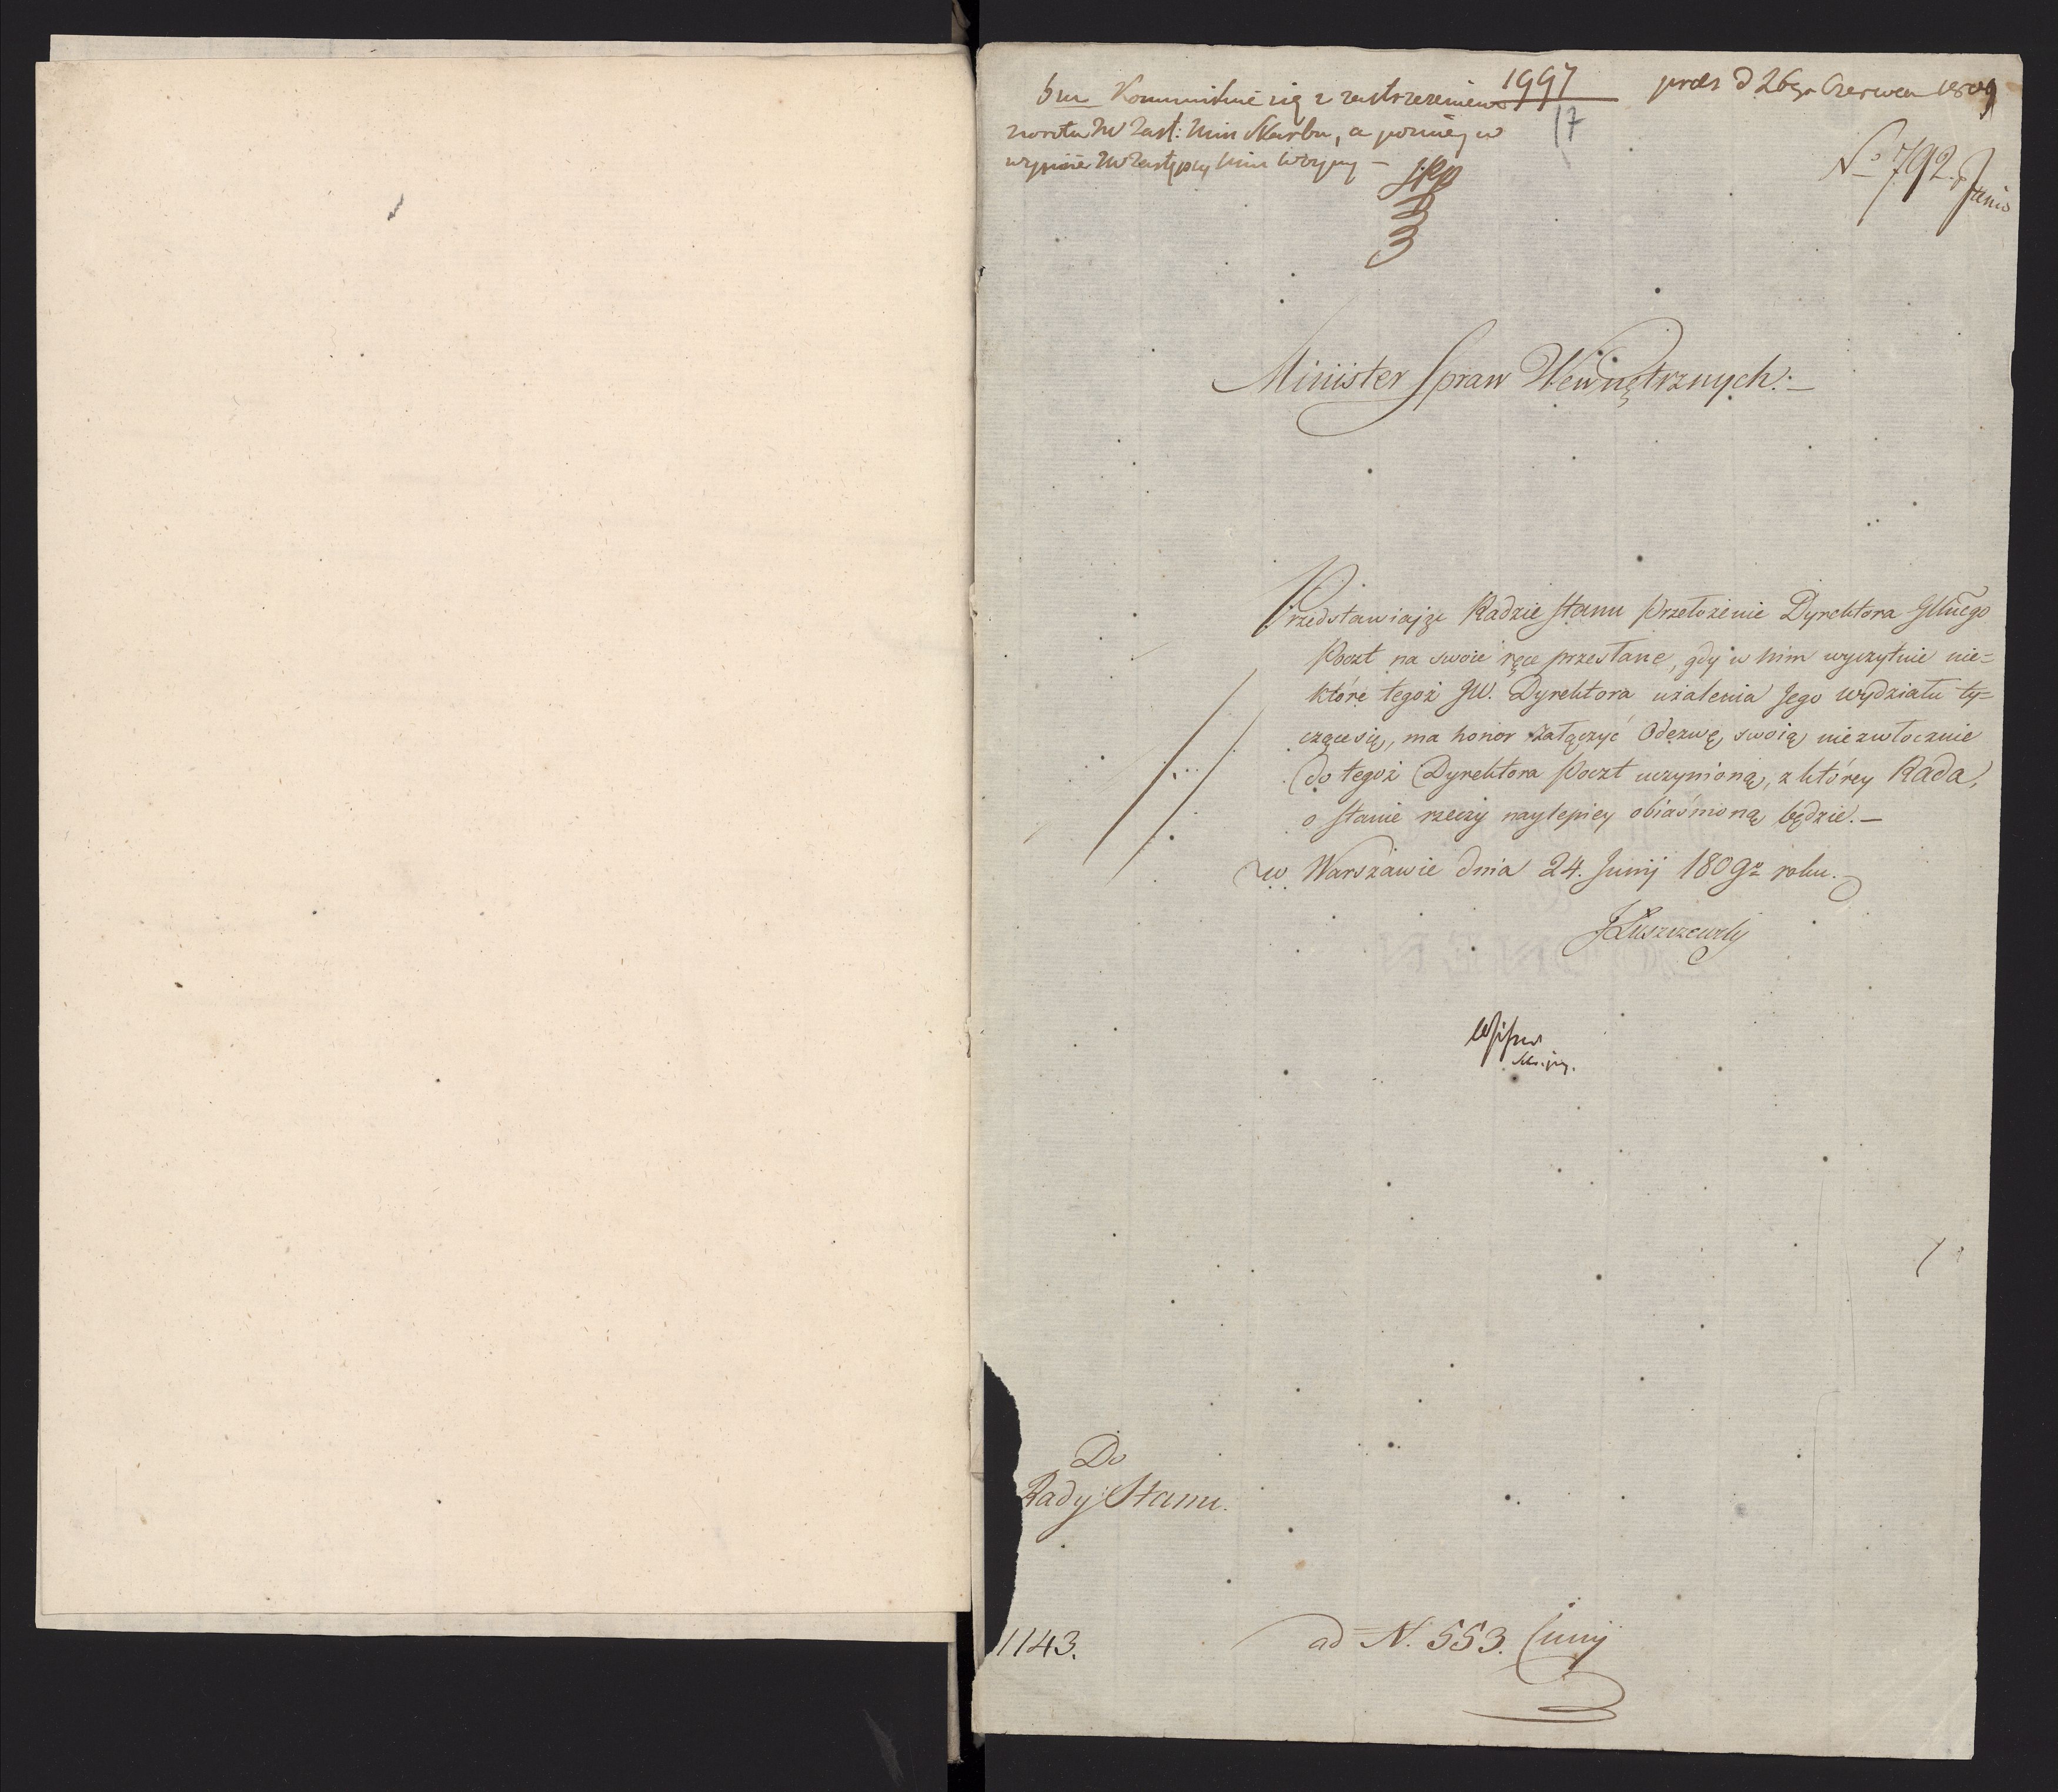 1997
17
prdes d 26go Czerwca 1809
No 792. Junio
bm Kommunikuie się z zastrzeżeniem
zwrotu JW Zast: Min Skarbu, a poźniey w
wypisie JW Zastępcy Min Woyny –
Minister Spraw Wewnętrznych.–
Przedstawiaiąc Radzie Stanu Przełożenie Dyrektora Gllnego
Poczt na swoie ręce przesłane, gdy w nim wyczytuie nie=
które tegoż JW. Dyrektora użalenia Jego wydziału ty=
czące się, ma honor załączyć Odezwę swoią niezwłocznie
do tegoż Dyrektora Poczt uczynioną, z którey Rada,
o stanie rzeczy naylepiey obiaśnioną będzie.–
w Warszawie dnia 24. Junij 1809o roku.
JŁuszczewsky
Do
Rady Stanu.
1143.
ad N. 553. Junij